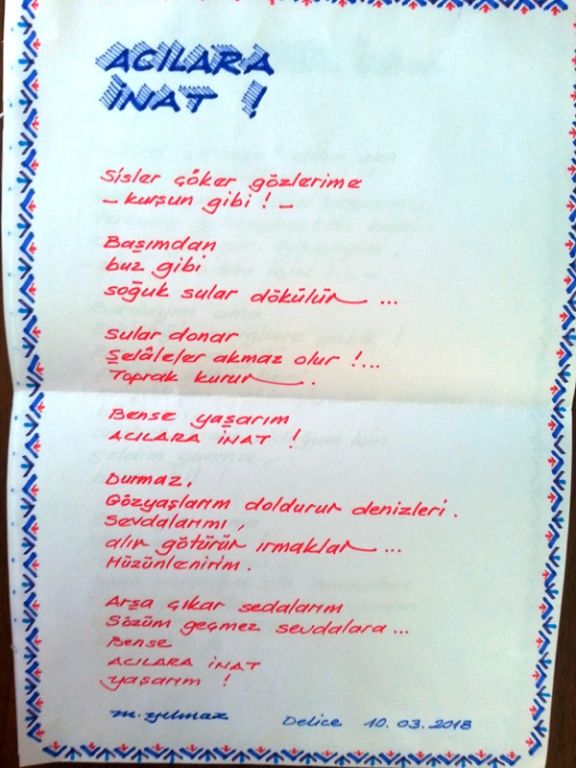 ACILARA
İNAT !
Sisler çöker gözlerime
- kurşun gibi ! -
Başımdan
buz gibi
soğuk sular dökülür ...
Sular donar
Şelâleler akmaz olur !...
Toprak kurur .
Bense yaşarım
ACILARA İNAT !
Durmaz,
Gözyaşlarım doldurur denizleri .
Sevdalarımı ,
alır götürür ırmaklar ...
Hüzünlenirim .
Arşa çıkar sedalarım
Sözüm geçmez sevdalara ...
Bense
ACILARA İNAT
yaşarım !
m. yılmaz Delice 10.03.2018